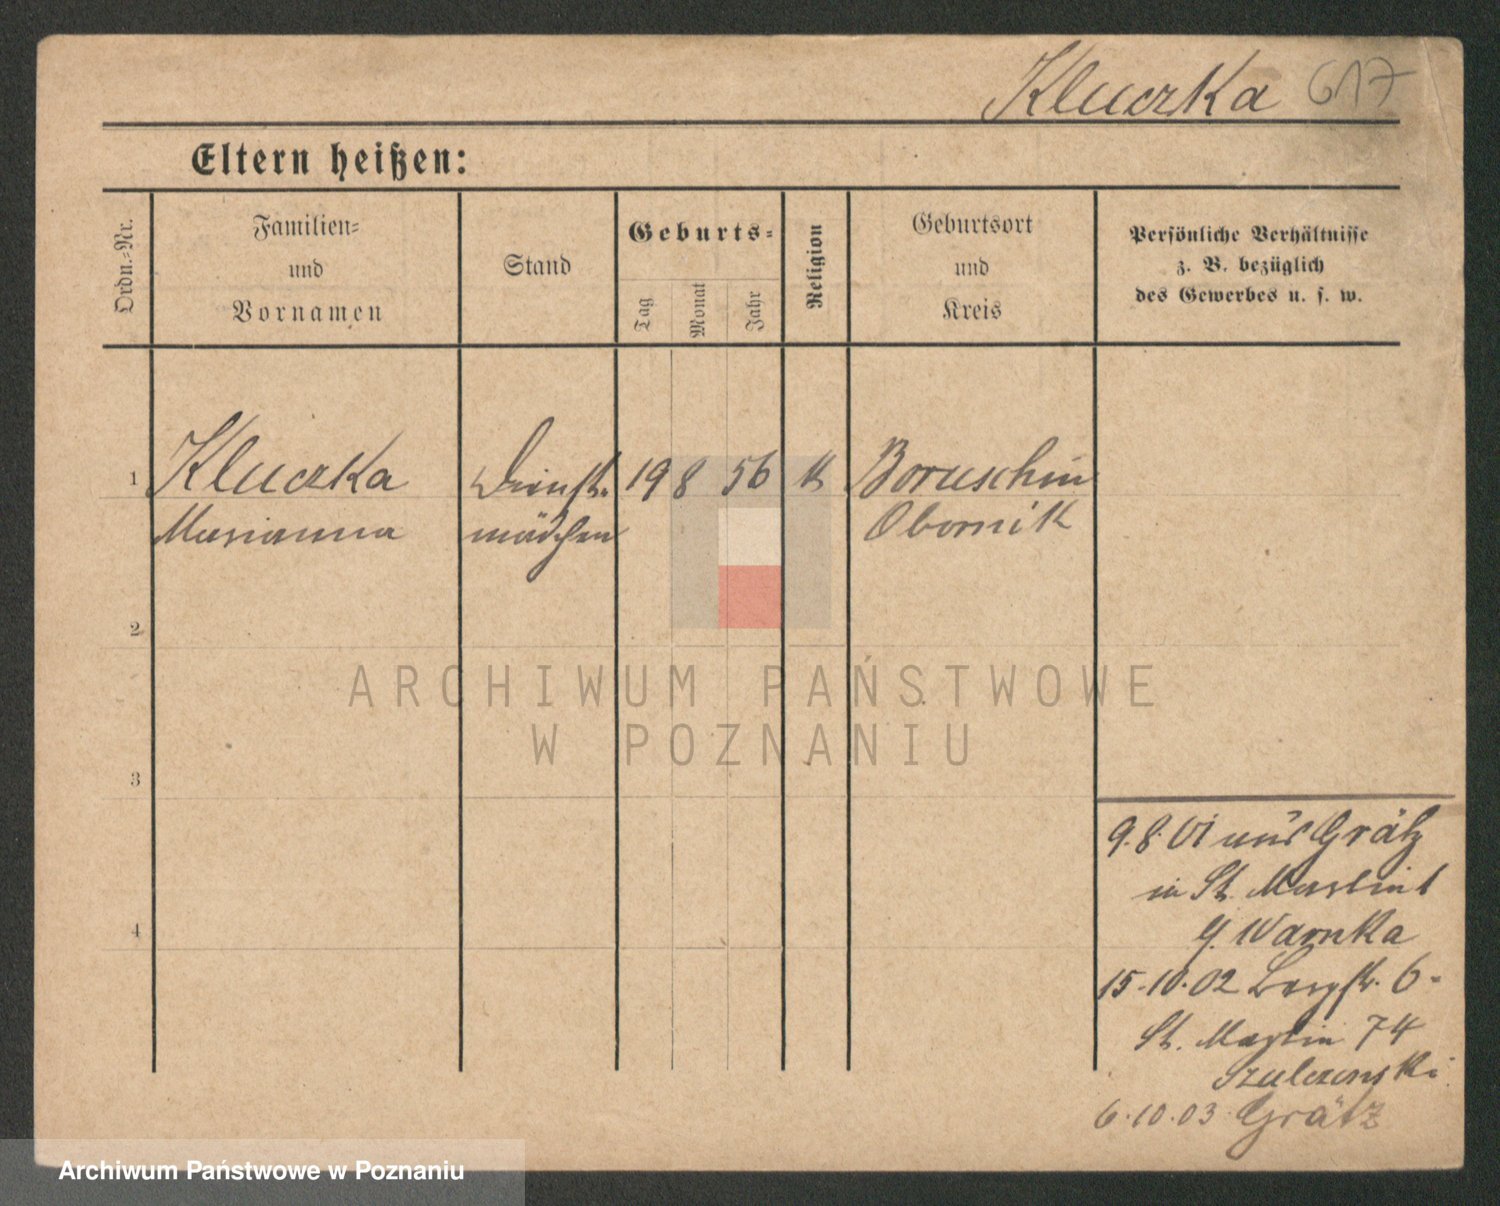 Kluczka 617
Eltern heißen:
Ordn.-Nr.
Familien-
und
Vornamen
Stand
Geburts-
Tag
Monat
Jahr
Religion
Geburtsort
und
Kreis
Persönliche Verhältnisse
z. B. bezüglich
des Gewerbes u. s. w.
1 Kluczka Dienst- 19 8 56 k Boruschin
Marianna mädchen Obornik
2
3
4
9.8.01 aus Grätz
in St. Martin
Warnka
15.10.02 Bergstr. 6-
St. Martin 74
Szulczenski
6.10.03 Grätz
ARCHIWUM PAŃSTWOWE
W POZNANIU
Archiwum Państwowe w Poznaniu